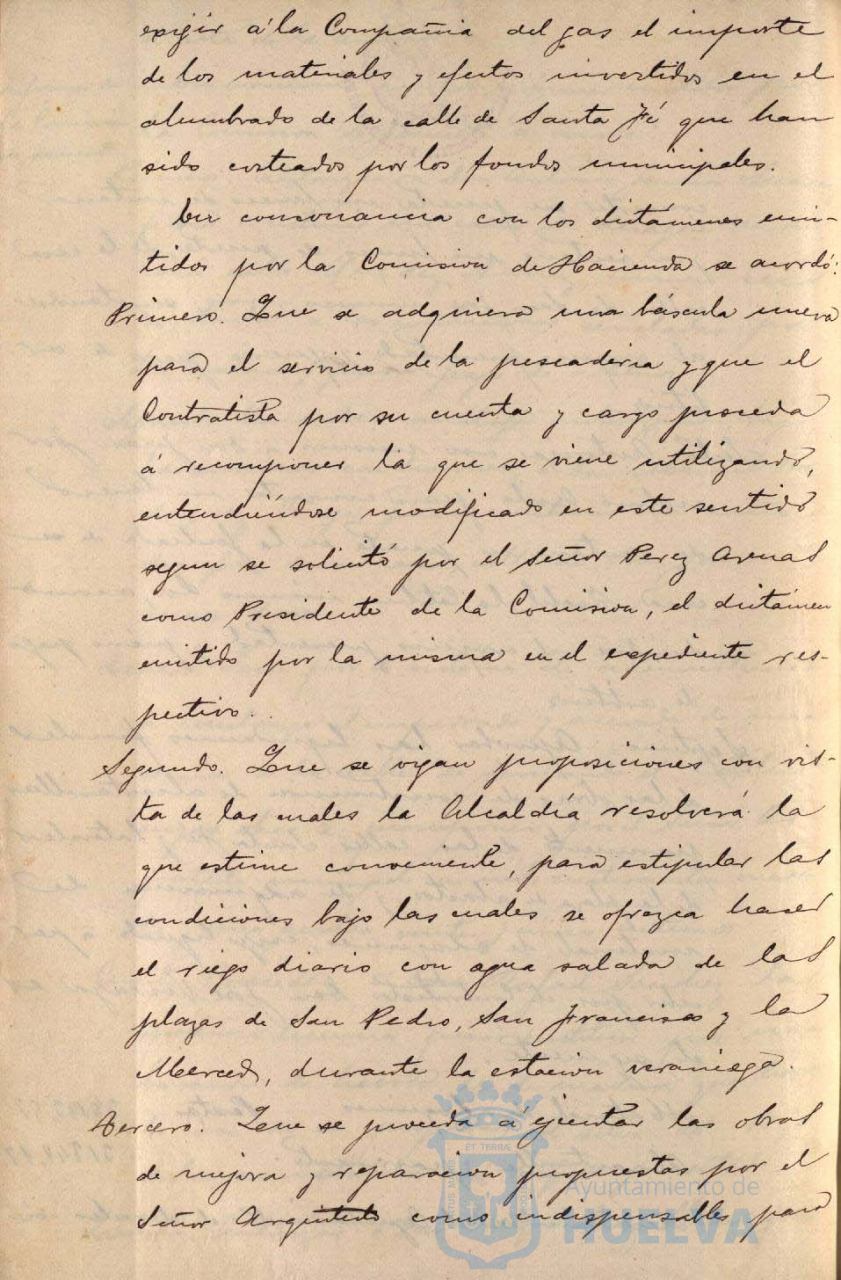 exijir á la Compañia del gas el importe
de los materiales y efectos invertidos en el
alumbrado de la calle de Santa Fé que han
sido costeados por los fondos municipales.
En consonancia con los dictámenes emi-
tidos por la Comision de Hacienda se acordó:
Primero. Que se adquiera una báscula nueva
para el servicio de la pescaderia y que el
Contratista por su cuenta y cargo proceda
á recomponer la que se viene utilizando,
entendiéndose modificado en este sentido
segun se solicitó por el Señor Perez Arenas
como Presidente de la Comision, el dictámen
emitido por la misma en el expediente res-
pectivo.
Segundo. Que se oigan proposiciones con vis-
ta de las cuales la Alcaldía resolverá la
que estime conveniente, para estipular las
condiciones bajo las cuales se ofrezca hacer
el riego diario con agua salada de las
plazas de San Pedro, San Francisco y la
Merced, durante la estacion veraniega.
Tercero. Que se proceda á ejecutar las obras
de mejora y reparacion propuestas por el
Señor Arquitecto como indispensables para
ET TERRÆ
Ayuntamiento de
HUELVA